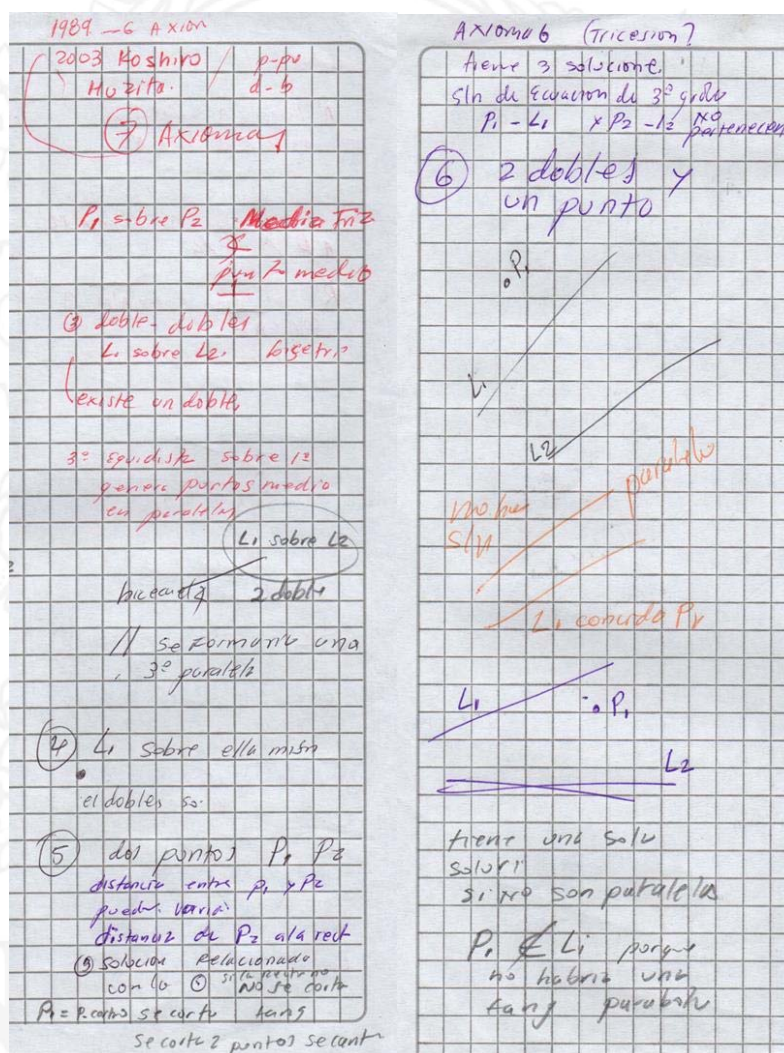 1989 - 6 Axion
2003 Koshiro / p-pu
Huzita. d-b
7 Axiomas
P1 sobre P2 Media Triz
punto medio
3 doble - dobles
L1 sobre L2.
existe un doble,
3º equidista sobre 1º
genera puntos medio
en paralelas
L1 sobre L2
2 doble
// se formaria una
3º paralela
4 L1 sobre ella mism
el dobles so.
5 dos puntos P1 P2
distancia entre P1 y P2
puede. varia.
distancia de P2 a la rect
solucion Relacionado
con lo si la recta no
NO se corta
P1 = P. centro se corta tang
se corta 2 puntos secant
Axioma 6 (Tricesion?
tiene 3 solucione.
sln de Ecuacion de 3º grado
P1 - L1 y P2 - L2 NO
pertenecen
6 2 dobles y
un punto
P1
L1
L2
paralelo
no hay
sln
L1 P1
L1
P1
L2
tiene una solu
soluri
si NO son paralelas
P1 ∉ L1 porque
no habria una
tang parabola